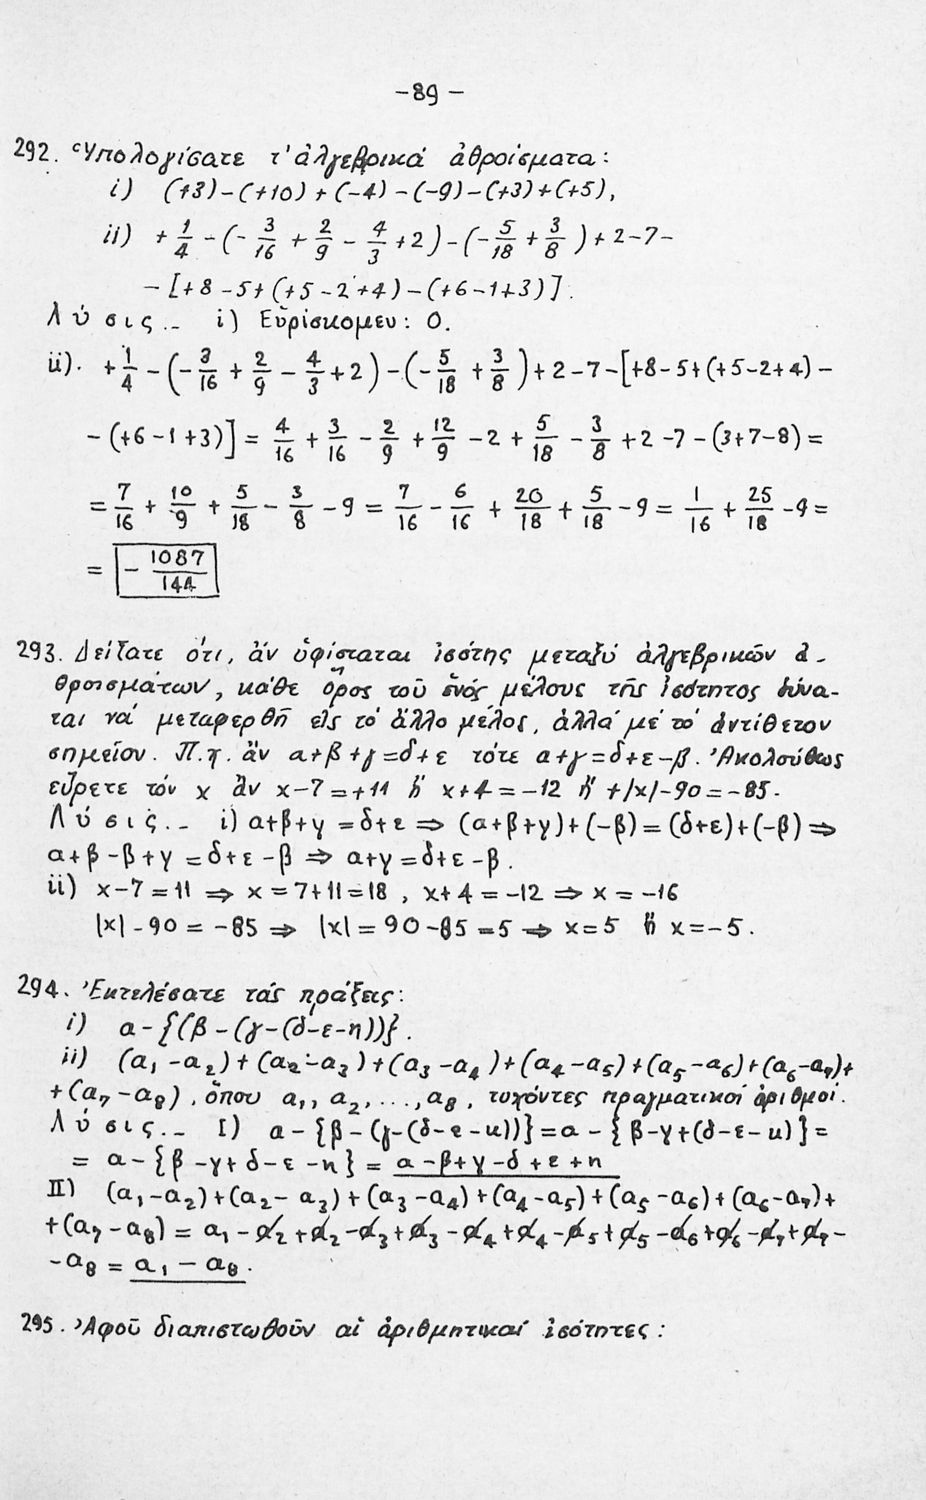 -89-
292. Ὑπολογίσατε τ' ἀλγεβρικά ἀθροίσματα:
i) (+3)-(+10)+(-4)-(-9)-(+3)+(+5),
ii) + 1/4 - (- 3/16 + 2/9 - 4/3 +2)-(- 5/18 + 3/8 )+2-7-
-[+8-5+(+5-2+4)-(+6-1+3)].
Λύσις.- i) Εὑρίσκομεν: 0.
ii). + 1/4 -(- 3/16 + 2/9 - 4/3 +2)-(- 5/18 + 3/8 )+2-7-[+8-5+(+5-2+4)-
-(+6-1+3)]= 4/16 + 3/16 - 2/9 + 12/9 -2+ 5/18 - 3/8 +2-7-(3+7-8)=
= 7/16 + 10/9 + 5/18 - 3/8 -9= 7/16 - 6/16 + 20/18 + 5/18 -9= 1/16 + 25/18 -9=
= - 1087/144
293. Δείξατε ὅτι, ἄν ὑφίσταται ἰσότης μεταξύ ἀλγεβρικῶν ἀ-
θροισμάτων, κάθε ὅρος τοῦ ἑνός μέλους τῆς ἰσότητος δύνα-
ται νά μεταφερθῇ εἰς τό ἄλλο μέλος, ἀλλά μέ τό ἀντίθετον
σημεῖον. Π.χ. ἄν α+β+γ=δ+ε τότε α+γ=δ+ε-β. Ἀκολούθως
εὕρετε τόν x ἄν x-7=+11 ἤ x+4=-12 ἤ +|x|-90=-85.
Λύσις.- i) α+β+γ=δ+ε ⇒ (α+β+γ)+(-β)=(δ+ε)+(-β) ⇒
α+β-β+γ=δ+ε-β ⇒ α+γ=δ+ε-β.
ii) x-7=11 ⇒ x=7+11=18, x+4=-12 ⇒ x=-16
|x|-90=-85 ⇒ |x|=90-85=5 ⇒ x=5 ἤ x=-5.
294. Ἐκτελέσατε τάς πράξεις:
i) α-{(β-(γ-(δ-ε-η))}.
ii) (α₁-α₂)+(α₂-α₃)+(α₃-α₄)+(α₄-α₅)+(α₅-α₆)+(α₆-α₇)+
+(α₇-α₈), ὅπου α₁, α₂,...,α₈, τυχόντες πραγματικοί ἀριθμοί.
Λύσις.- I) α-{β-(γ-(δ-ε-η))}=α-{β-γ+(δ-ε-η)}=
= α-{β-γ+δ-ε-η}= α-β+γ-δ+ε+η
II) (α₁-α₂)+(α₂-α₃)+(α₃-α₄)+(α₄-α₅)+(α₅-α₆)+(α₆-α₇)+
+(α₇-α₈)= α₁-α₂+α₂-α₃+α₃-α₄+α₄-α₅+α₅-α₆+α₆-α₇+α₇-
-α₈ = α₁-α₈.
295. Ἀφοῦ διαπιστωθοῦν αἱ ἀριθμητικαί ἰσότητες: